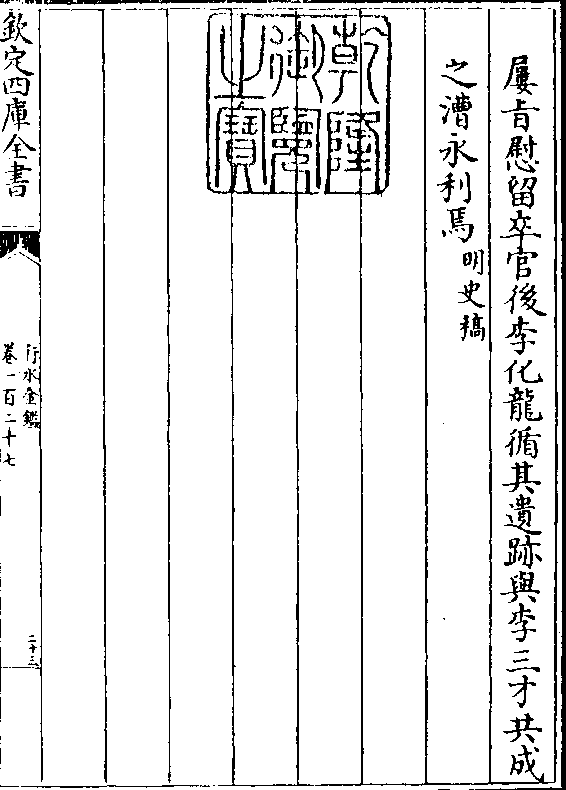 屢㫖慰留卒官後李化龍循其遺跡與李三才共成
之漕永利焉明史稿
乾隆
御覽
之寶
欽定四庫全書
行水金鑑
卷一百二十七
二十三